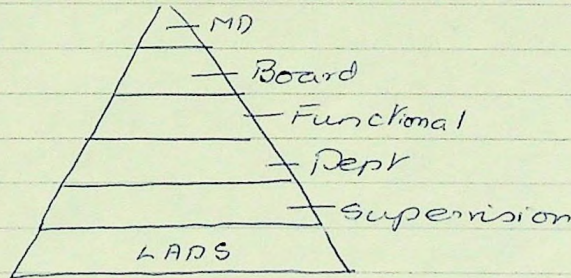 MD
Board
Functional
Dept
Supervision
LADS